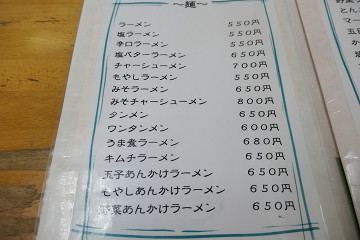 〜麺〜
ラーメン 550円
塩ラーメン 550円
辛口ラーメン 550円
塩バターラーメン 650円
チャーシューメン 700円
もやしラーメン 550円
みそラーメン 650円
みそチャーシューメン 800円
タンメン 650円
ワンタンメン 600円
うま煮ラーメン 680円
キムチラーメン 650円
玉子あんかけラーメン 650円
もやしあんかけラーメン 650円
野菜あんかけラーメン 650円
とん
マー
五目
かに